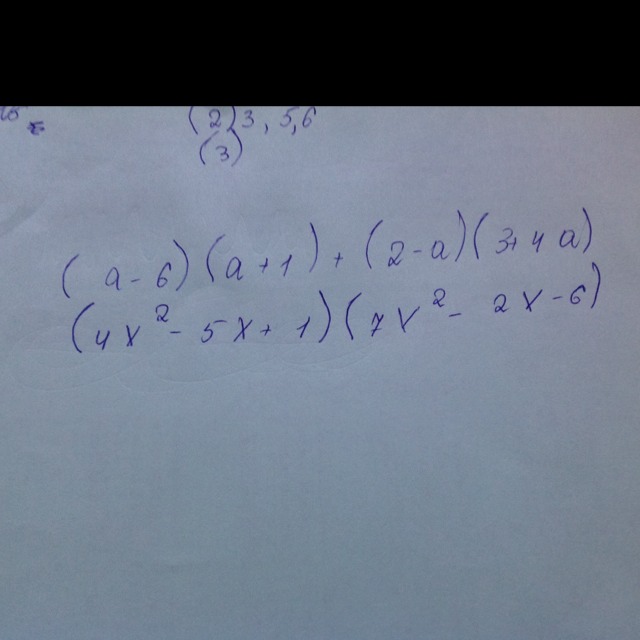 (2) 3, 5, 6
(3)
(a - 6)(a + 1) + (2 - a)(3 + 4a)
(4x² - 5x + 1)(7x² - 2x - 6)